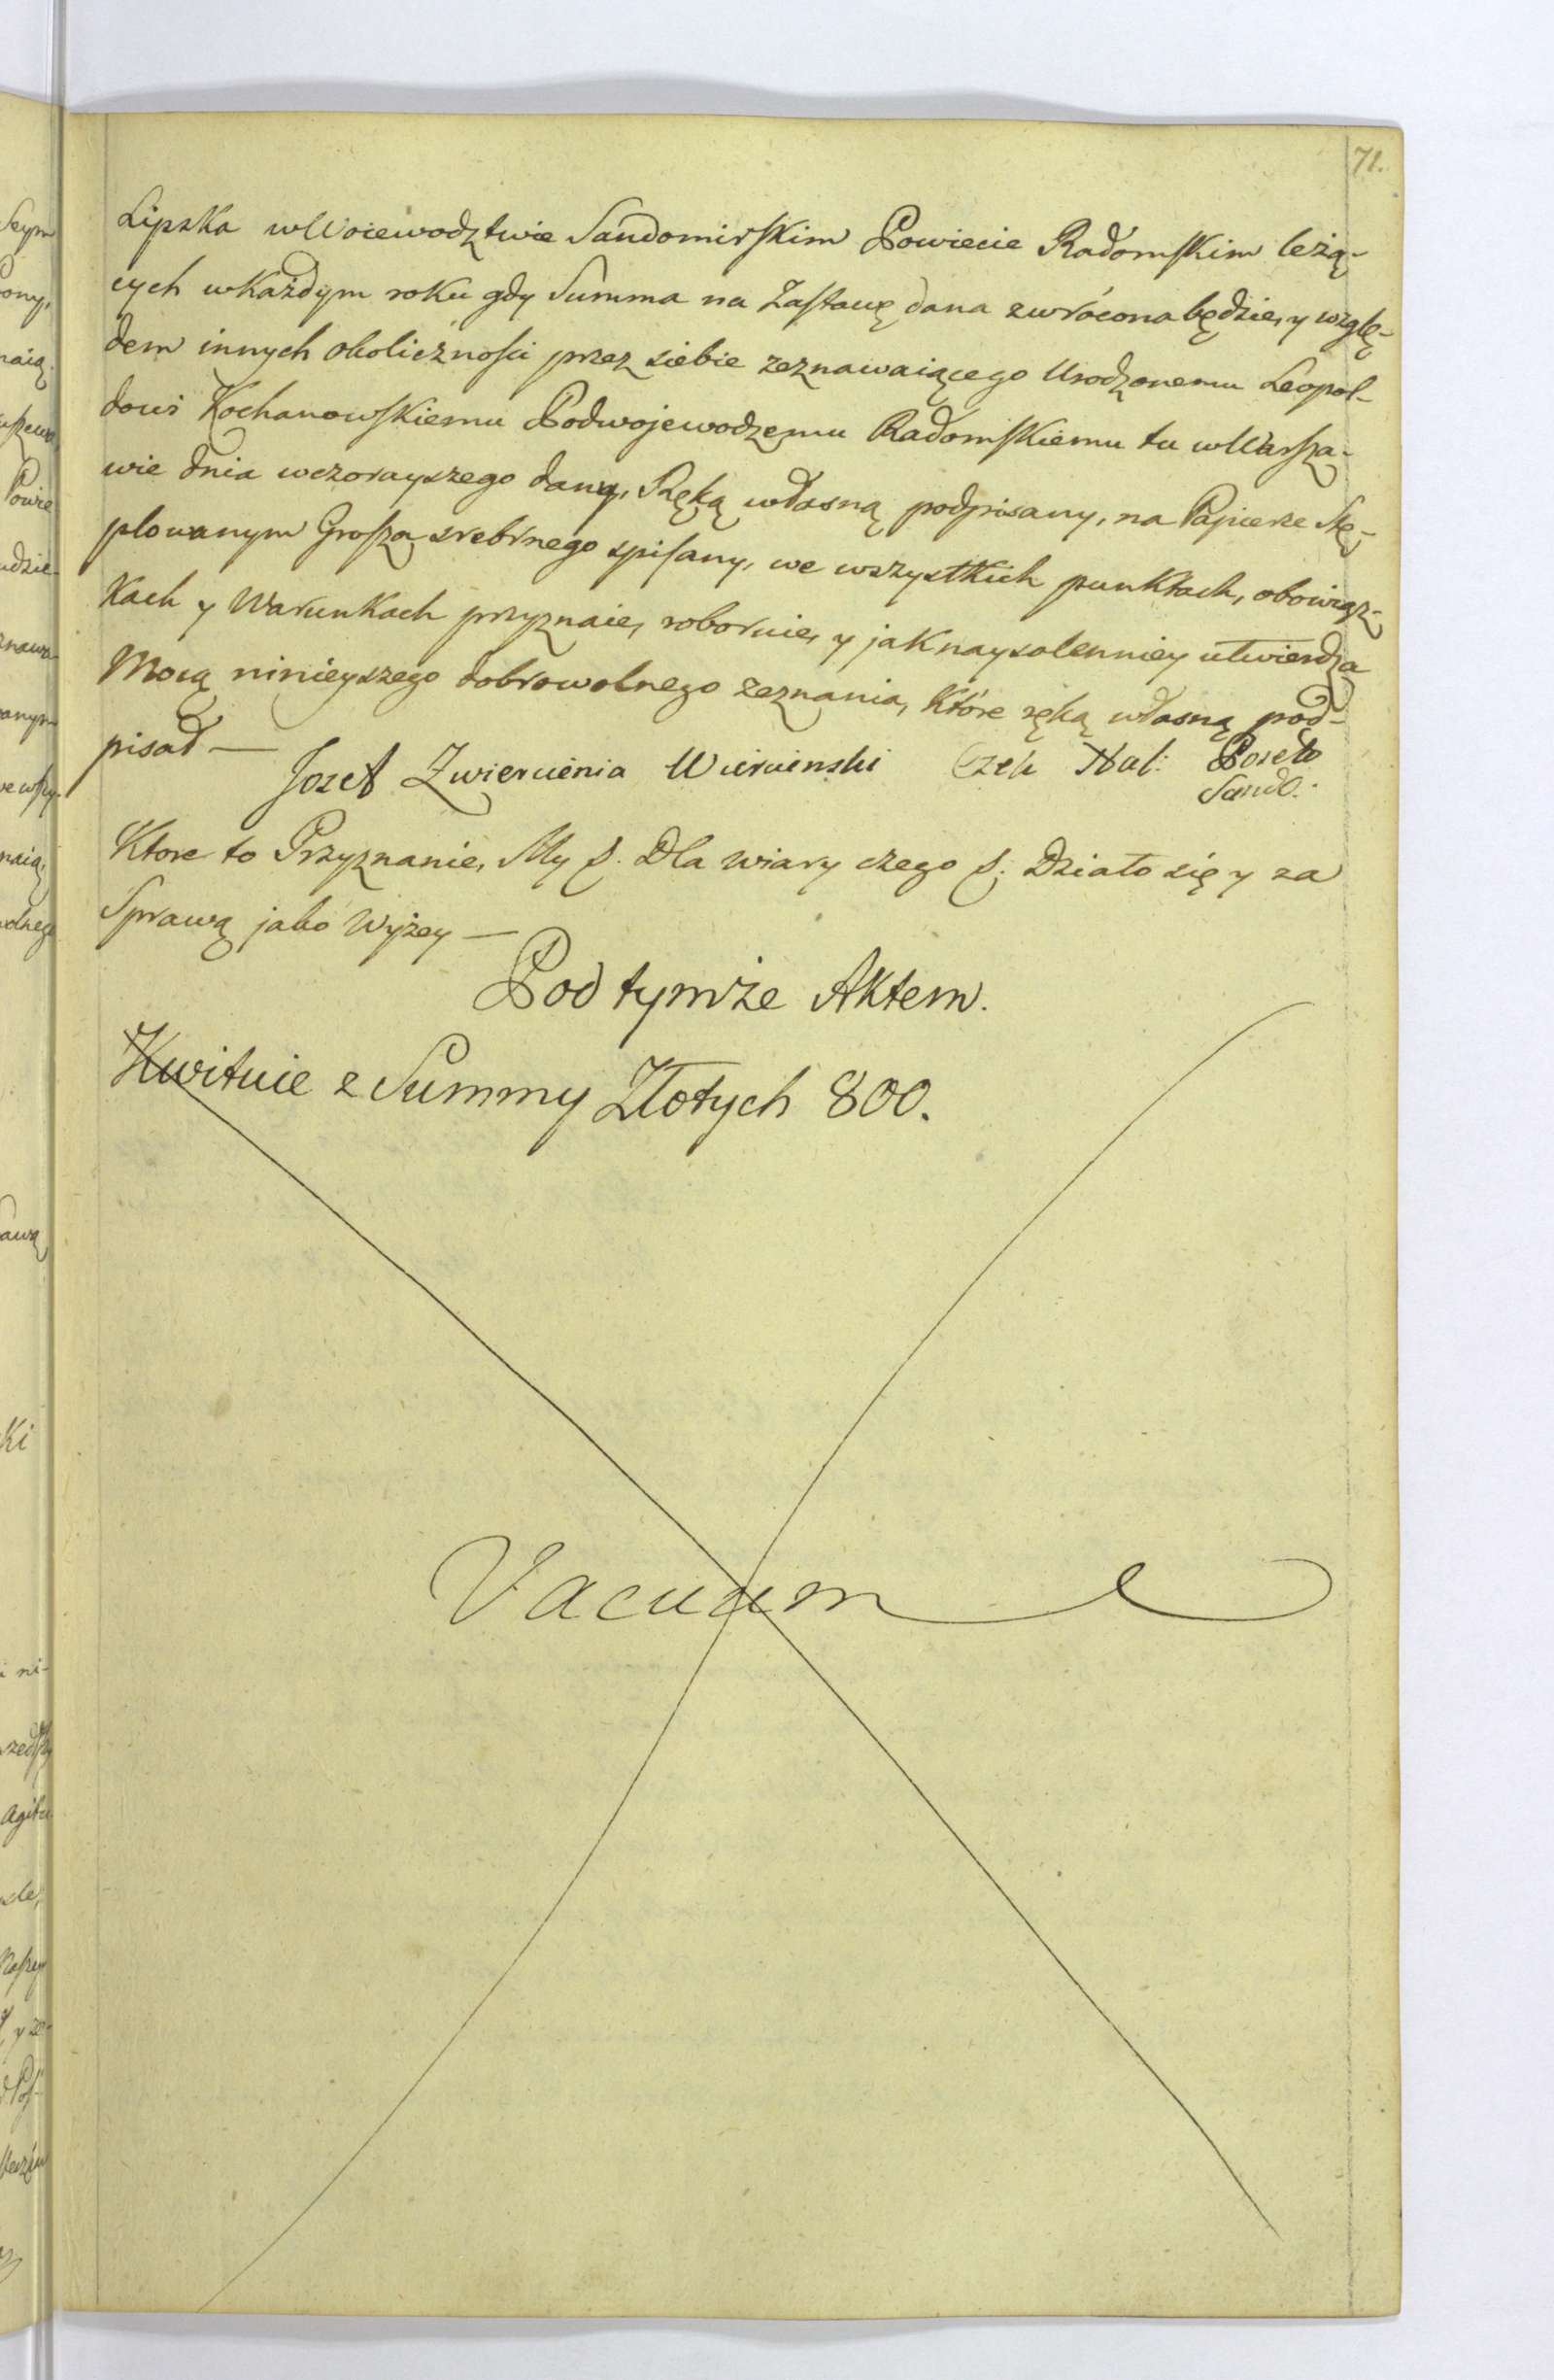 71.
Lipska w Woiewodztwie Sandomirskim Powiecie Radomskim leżą-
cych w każdym roku gdy Summa na Zastawę dana zwrócona będzie, y wzglę-
dem innych okoliczności przez siebie zeznawaiącego Urodzonemu Leopol-
dowi Kochanowskiemu Podwojewodzemu Radomskiemu tu w Warsza-
wie dnia wczorayszego dany, Ręką własną podpisany, na Papierze Stę-
plowanym Grosza srebrnego spisany, we wszystkich punktach, obowiąz-
kach y Warunkach przyznaie, roboruie, y jak naysolenniey utwierdza
Mocą ninieyszego dobrowolnego zeznania, które ręką własną pod-
pisał —
Jozef Zwiercienia Wiercienski Poseło
Sand:
Ktore to Przyznanie, My S. Dla wiary czego S. Działo się y za
Sprawą jako Wyżey —
Pod tymże Aktem.
Kwituie z Summy Złotych 800.
Vacuum